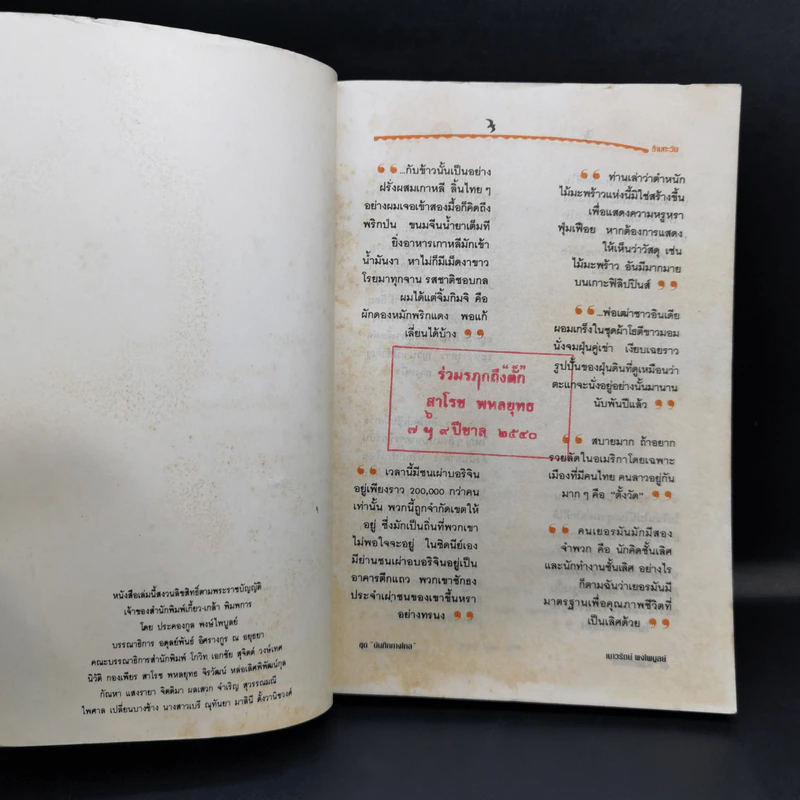 หนังสือเล่มนี้สงวนลิขสิทธิ์ตามพระราชบัญญัติ
เจ้าของสำนักพิมพ์เกี้ยว-เกล้า พิมพการ
โดย ประคองกูล พงษ์ไพบูลย์
บรรณาธิการ อดุลย์พันธ์ อิศรางกูร ณ อยุธยา
คณะบรรณาธิการสำนักพิมพ์ โกวิท เอกชัย สุจิตต์ วงษ์เทศ
นิวัติ กองเพียร สาโรช พหลยุทธ จิรวัฒน์ หล่อเลิศพิพัฒน์กุล
กัณหา แสงรายา จิตติมา ผลเสวก จำเริญ สุวรรณมณี
ไพศาล เปลี่ยนบางช้าง นางสาวเบรี ณุทันยา มาลินี ตั้งวานิชวงศ์
๖
ข้ามตะวัน
❝ ...กับข้าวนั้นเป็นอย่าง
ฝรั่งผสมเกาหลี ลิ้นไทย ๆ
อย่างผมเจอเข้าสองมื้อก็คิดถึง
พริกป่น ขนมจีนน้ำยาเต็มที
ยิ่งอาหารเกาหลีมักเข้า
น้ำมันงา หาไม่ก็มีเม็ดงาขาว
โรยมาทุกจาน รสชาติชอบกล
ผมได้แต่จิ้มกิมจิ คือ
ผักดองหมักพริกแดง พอแก้
เลี่ยนได้บ้าง ❞
❝ เวลานี้มีชนเผ่าบอริจิน
อยู่เพียงราว 200,000 กว่าคน
เท่านั้น พวกนี้ถูกจำกัดเขตให้
อยู่ ซึ่งมักเป็นถิ่นที่พวกเขา
ไม่พอใจจะอยู่ ในซิดนีย์เอง
มีย่านชนเผ่าบอริจินอยู่เป็น
อาคารตึกแถว พวกเขาชักธง
ประจำเผ่าชนของเขาขึ้นหรา
อย่างทรนง ❞
❝ ท่านเล่าว่าตำหนัก
ไม้มะพร้าวแห่งนี้มิใช่สร้างขึ้น
เพื่อแสดงความหรูหรา
ฟุ่มเฟือย หากต้องการแสดง
ให้เห็นว่าวัสดุ เช่น
ไม้มะพร้าว อันมีมากมาย
บนเกาะฟิลิปปินส์ ❞
❝ ...พ่อเฒ่าชาวอินเดีย
ผอมเกร็งในชุดผ้าโธตีขาวมอม
นั่งจมฝุ่นคู่เข่า เงียบเฉยราว
รูปปั้นของฝุ่นดินที่ดูเหมือนว่า
ตะแกจะนั่งอยู่อย่างนั้นมานาน
นับพันปีแล้ว ❞
❝ สบายมาก ถ้าอยาก
รวยลัดในอเมริกาโดยเฉพาะ
เมืองที่มีคนไทย คนลาวอยู่กัน
มาก ๆ คือ "ตั้งวัด" ❞
❝ คนเยอรมันมักมีสอง
จำพวก คือ นักคิดชั้นเลิศ
และนักทำงานชั้นเลิศ อย่างไร
ก็ตามฉันว่าเยอรมันมี
มาตรฐานเพื่อคุณภาพชีวิตที่
เป็นเลิศด้วย ❞
ร่วมรฦกถึง "ตั๊ก"
สาโรช พหลยุทธ
๗ ฯ ๙ ปีชาล ๒๕๔๐
ชุด "บันทึกทางไกล"
เนาวรัตน์ พงษ์ไพบูลย์